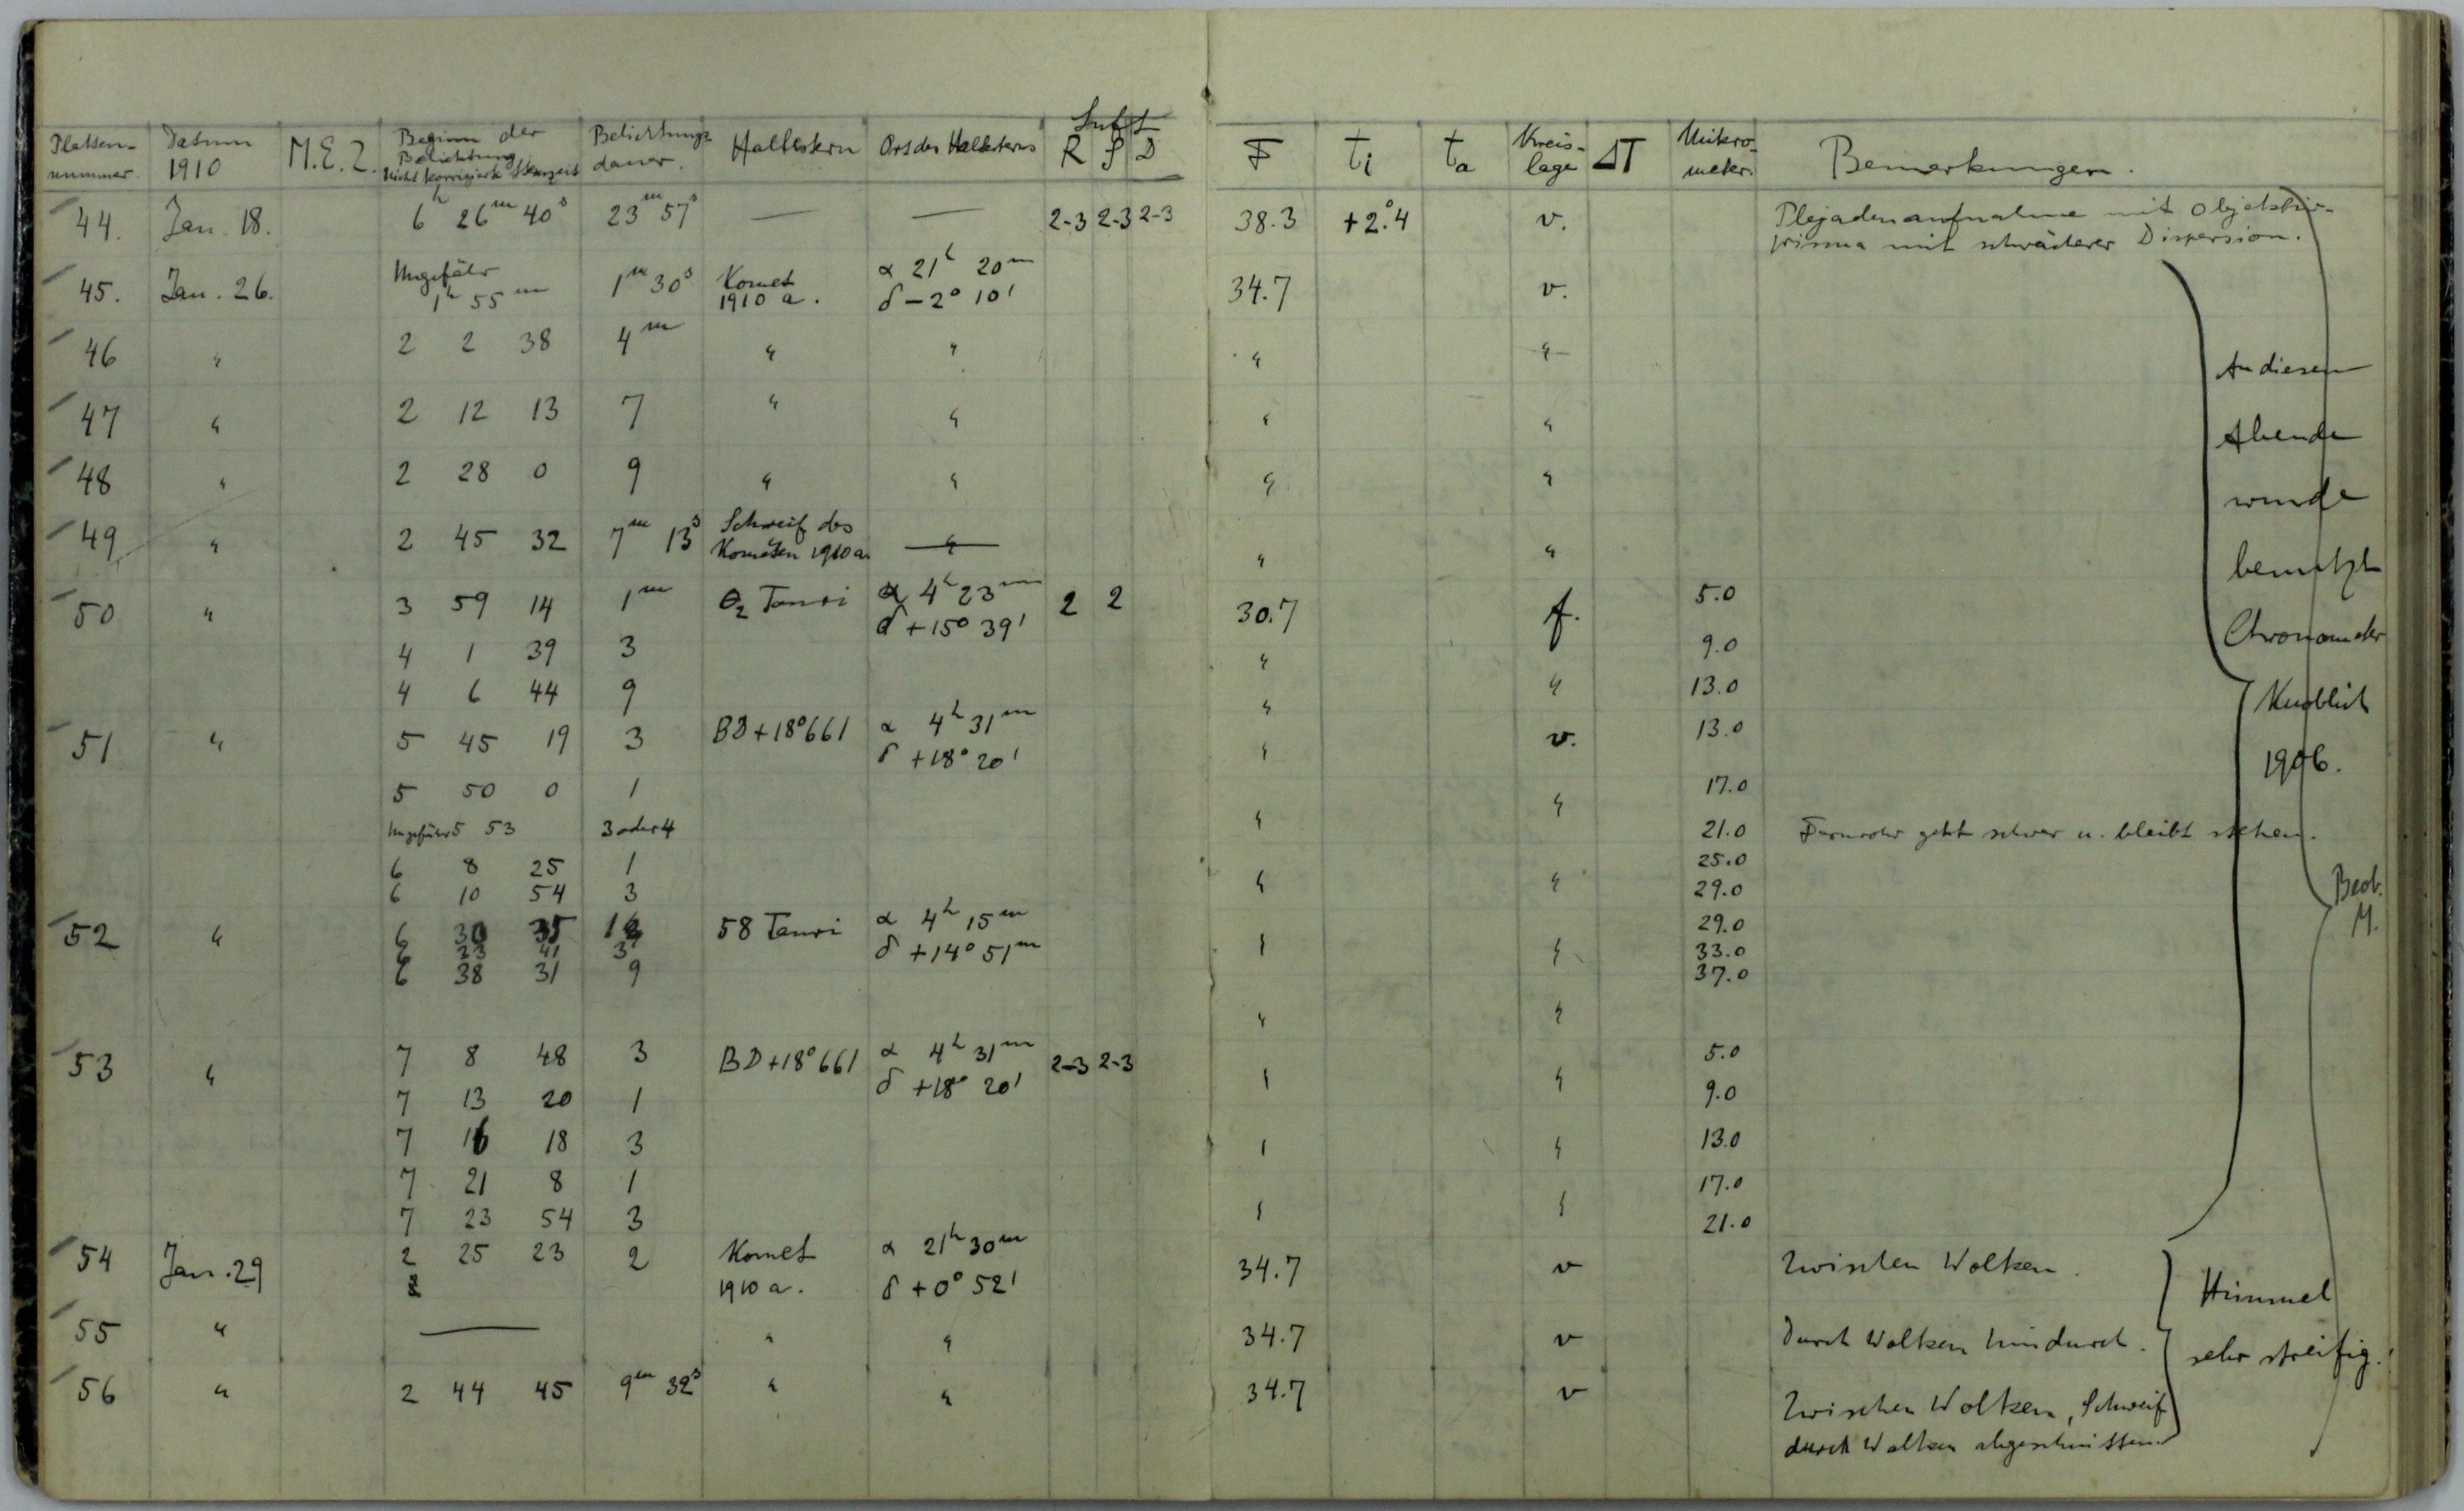 Platten- Datum M.E.Z. Beginn der Belichtungs- Haltestern Ort des Haltesterns Luft F ti ta Kreis- ΔT Mikro- Bemerkungen.
nummer. 1910 Belichtung dauer. R S D lage meter.
Nicht korrigierte Sternzeit
44. Jan. 18. 6h 26m 40s 23m 57s — — 2-3 2-3 2-3 38.3 +2°.4 v. Plejadenaufnahme mit Objektiv-
prisma mit schwächerer Dispersion.
45. Jan. 26. Ungefähr 1m 30s Komet α 21h 20m 34.7 v.
1h 55m 1910 a. δ -2° 10'
46 " 2 2 38 4m " " " " An diesem
47 " 2 12 13 7 " " " " Abende
48 " 2 28 0 9 " " " " wurde
49 " 2 45 32 7m 13s Schweif des — " " benutzt
Kometen 1910 a.
50 " 3 59 14 1m Θ2 Tauri α 4h 23m 2 2 30.7 f. 5.0
δ +15° 39'
4 1 39 3 " 9.0 Chronometer
4 6 44 9 " " 13.0 Knoblich
51 " 5 45 19 3 BD+18°661 α 4h 31m " v. 13.0
δ +18° 20' 1906.
5 50 0 1 " 17.0
Ungefähr 5 53 3 oder 4 " 21.0 Fernrohr geht schwer u. bleibt stehen.
6 8 25 1 25.0
6 10 54 3 " " 29.0 Beob.
M.
52 " 6 30 35 1 58 Tauri α 4h 15m 29.0
6 23 41 3 δ +14° 51m " " 33.0
6 38 31 9 37.0
" "
53 " 7 8 48 3 BD+18°661 α 4h 31m 2-3 2-3 " " 5.0
δ +18° 20'
7 13 20 1 9.0
7 16 18 3 " " 13.0
7 21 8 1 17.0
7 23 54 3 " " 21.0
54 Jan. 29 2 25 23 2 Komet α 21h 30m 34.7 v Zwischen Wolken.
1910 a. δ +0° 52' Himmel
55 " — " " 34.7 v Durch Wolken hindurch. sehr streifig.
56 " 2 44 45 9m 32s " " 34.7 v Zwischen Wolken, Schweif
durch Wolken abgeschnitten.